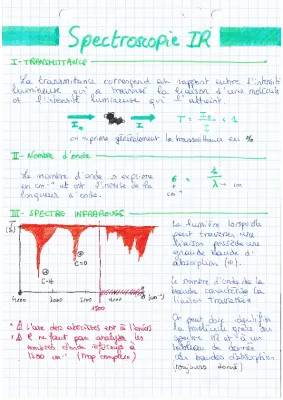 Spectroscopie IR
I - TRANSMITTANCE
La transmittance correspond au rapport entre l'intensité
lumineuse qui a traversé la liaison d'une molécule
et l'intensité lumineuse qui l'atteint.
I₀ I
on exprime généralement la transmittance en %
II - Nombre d'onde
Le nombre d'onde s'exprime
en cm⁻¹ et est l'inverse de la
longueur d'onde.
σ = 1/λ
cm⁻¹ cm
III - SPECTRE INFRAROUGE
C=O
C-H
4000 3000 2000
1500
L'axe des abscisses est à l'envers
Il ne faut pas analyser les
nombres d'onde inférieurs à
1500 cm⁻¹ (trop complexe)
La lumière lorsqu'elle
peut traverser une
liaison possède une
grande bande
d'absorption
Le nombre d'onde de la
bande caractérise la
liaison
On peut donc identifier
la molécule grâce au
spectre IR et à un
tableau de données
des bandes d'absorption
(toujours donné)